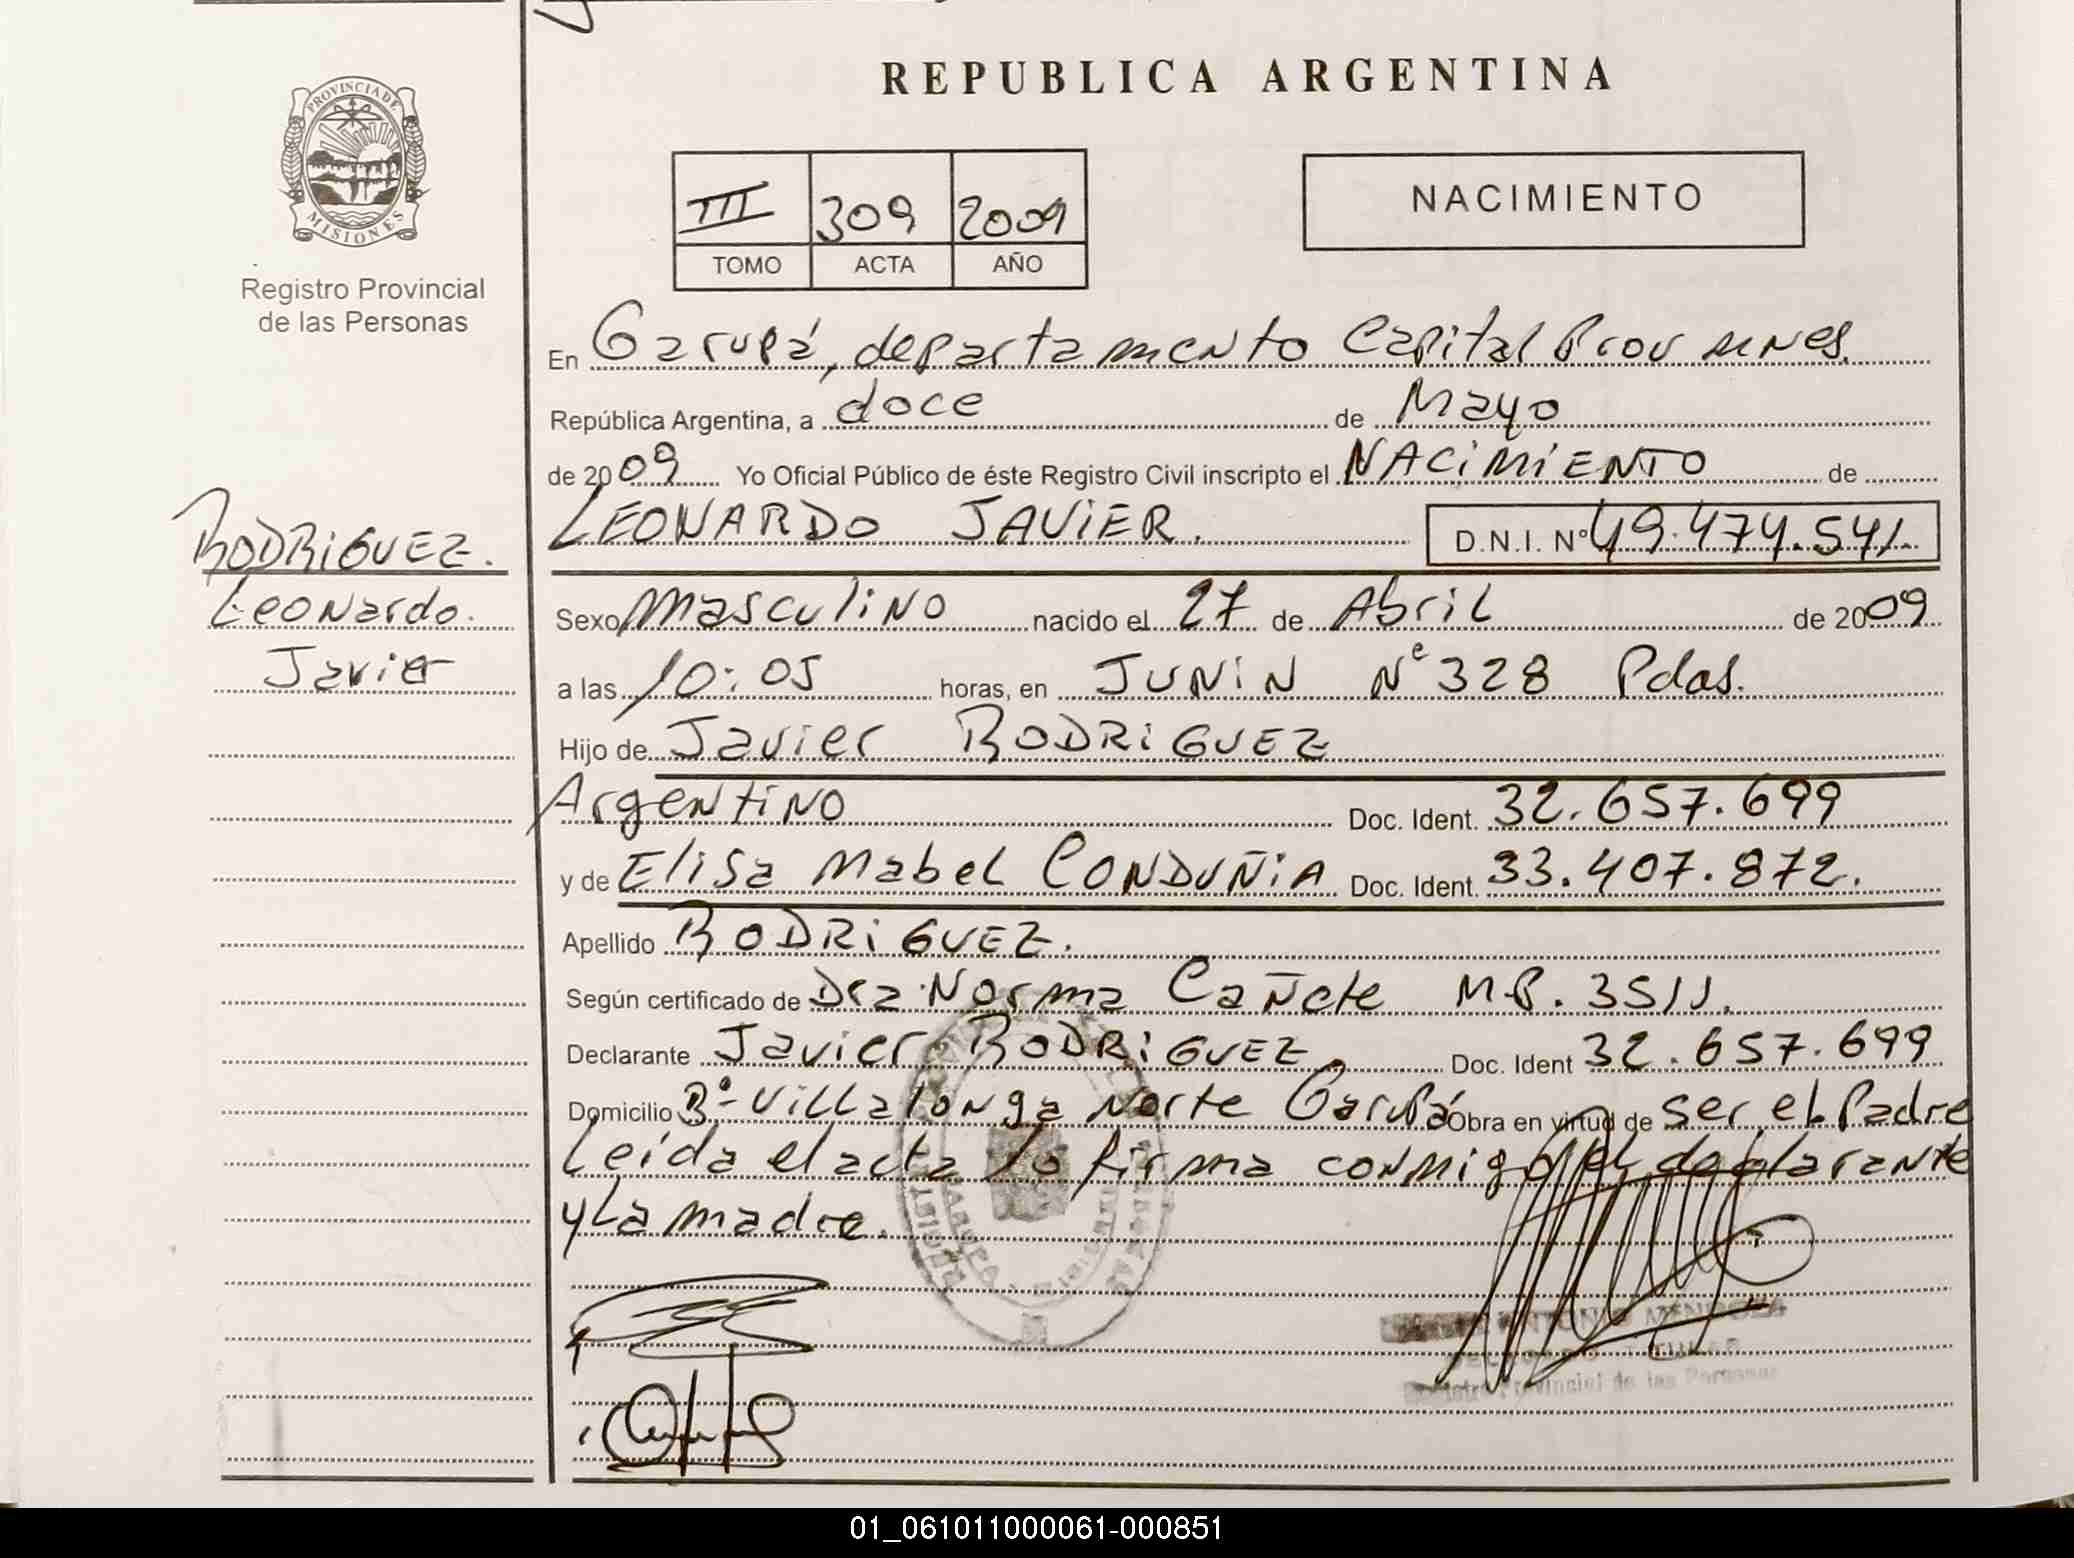 REPUBLICA ARGENTINA
PROVINCIA DE
MISIONES
Registro Provincial
de las Personas
III 309 2009
TOMO ACTA AÑO
NACIMIENTO
En Garupá, departamento Capital Prov mnes.
República Argentina, a doce de Mayo
de 2009 Yo Oficial Público de éste Registro Civil inscripto el NACIMIENTO de
LEONARDO JAVIER. D.N.I. Nº 49.474.541.
RODRIGUEZ.
Leonardo.
Javier
Sexo masculino nacido el 27 de Abril de 2009
a las 10:05 horas, en JUNIN Nº 328 Pdas.
Hijo de Javier RODRIGUEZ
Argentino Doc. Ident. 32.657.699
y de Elisa Mabel CONDUÑIA Doc. Ident. 33.407.872.
Apellido RODRIGUEZ.
Según certificado de Dra. Norma Cañete M.P. 3511.
Declarante Javier RODRIGUEZ. Doc. Ident 32.657.699
Domicilio Bº Villalonga Norte Garupá Obra en virtud de ser el Padre
Leída el acta la firma conmigo el declarante
y La madre.
ANTONIO MENDOZA
TITULAR
Registro Provincial de las Personas
01_061011000061-000851